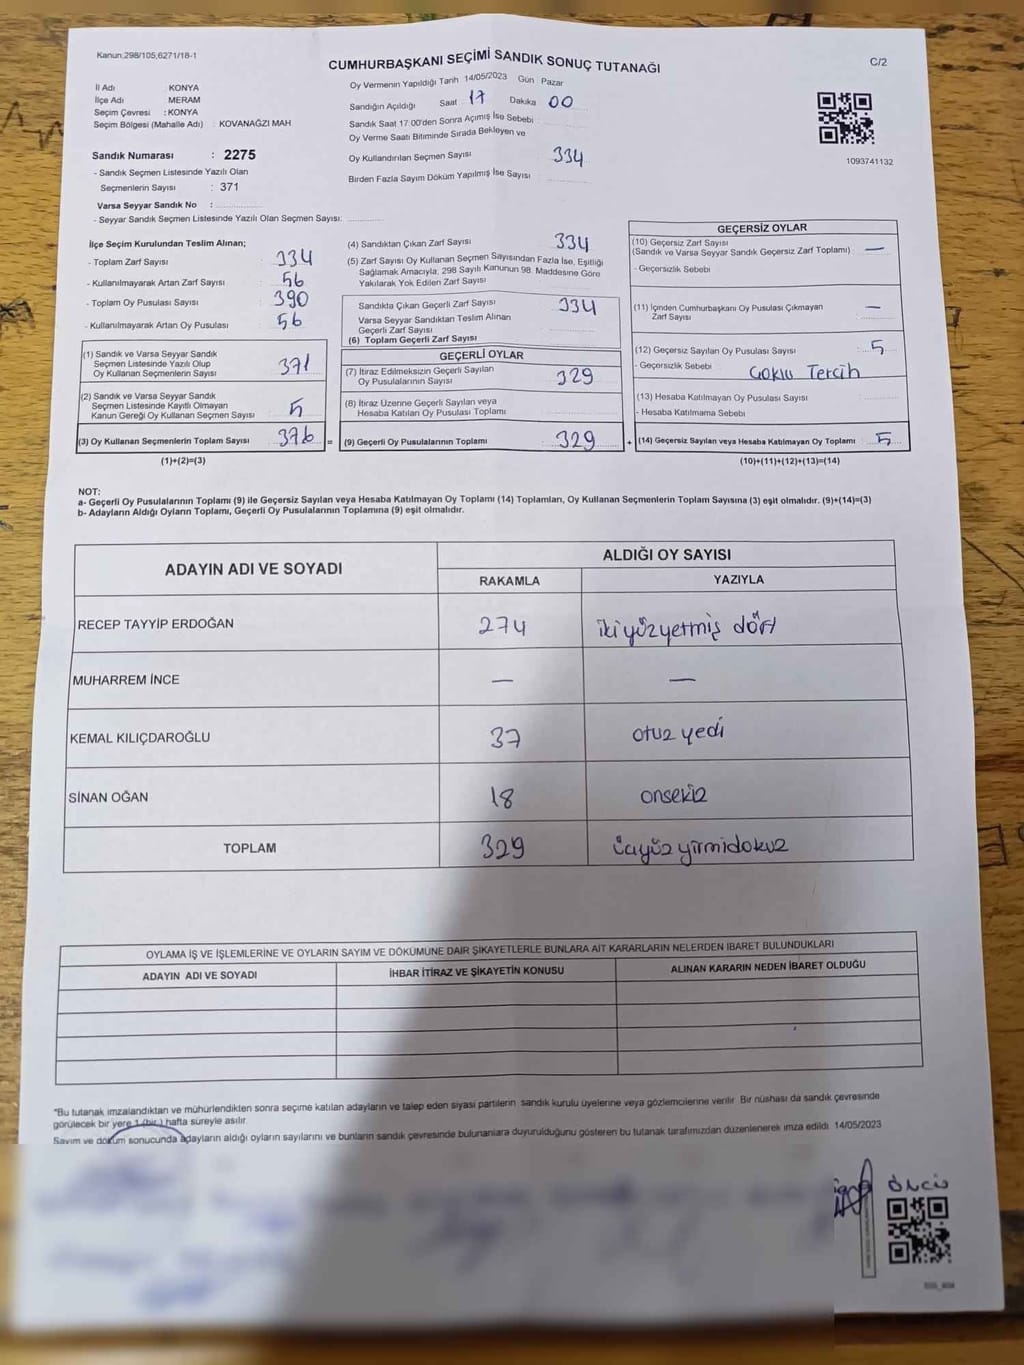 Kanun:298/105,6271/18-1
CUMHURBAŞKANI SEÇİMİ SANDIK SONUÇ TUTANAĞI
C/2
İl Adı : KONYA
İlçe Adı : MERAM
Seçim Çevresi : KONYA
Seçim Bölgesi (Mahalle Adı) : KOVANAĞZI MAH
Sandık Numarası : 2275
- Sandık Seçmen Listesinde Yazılı Olan
Seçmenlerin Sayısı : 371
Varsa Seyyar Sandık No :
- Seyyar Sandık Seçmen Listesinde Yazılı Olan Seçmen Sayısı:
Oy Vermenin Yapıldığı Tarih 14/05/2023 Gün Pazar
Sandığın Açıldığı Saat 17 Dakika 00
Sandık Saat 17:00'den Sonra Açımış İse Sebebi :
Oy Verme Saati Bitiminde Sırada Bekleyen ve
Oy Kullandırılan Seçmen Sayısı : 334
Birden Fazla Sayım Döküm Yapılmış İse Sayısı :
1093741132
İlçe Seçim Kurulundan Teslim Alınan;
- Toplam Zarf Sayısı : 334
- Kullanılmayarak Artan Zarf Sayısı : 56
- Toplam Oy Pusulası Sayısı : 390
- Kullanılmayarak Artan Oy Pusulası : 56
(1) Sandık ve Varsa Seyyar Sandık
Seçmen Listesinde Yazılı Olup
Oy Kullanan Seçmenlerin Sayısı : 371
(2) Sandık ve Varsa Seyyar Sandık
Seçmen Listesinde Kayıtlı Olmayan
Kanun Gereği Oy Kullanan Seçmen Sayısı : 5
(3) Oy Kullanan Seçmenlerin Toplam Sayısı : 376 =
(1)+(2)=(3)
(4) Sandıktan Çıkan Zarf Sayısı : 334
(5) Zarf Sayısı Oy Kullanan Seçmen Sayısından Fazla İse, Eşitliği
Sağlamak Amacıyla, 298 Sayılı Kanunun 98. Maddesine Göre
Yakılarak Yok Edilen Zarf Sayısı :
Sandıkta Çıkan Geçerli Zarf Sayısı : 334
Varsa Seyyar Sandıktan Teslim Alınan
Geçerli Zarf Sayısı :
(6) Toplam Geçerli Zarf Sayısı :
GEÇERLİ OYLAR
(7) İtiraz Edilmeksizin Geçerli Sayılan
Oy Pusulalarının Sayısı : 329
(8) İtiraz Üzerine Geçerli Sayılan veya
Hesaba Katılan Oy Pusulası Toplamı :
(9) Geçerli Oy Pusulalarının Toplamı : 329 +
GEÇERSİZ OYLAR
(10) Geçersiz Zarf Sayısı
(Sandık ve Varsa Seyyar Sandık Geçersiz Zarf Toplamı) : —
- Geçersizlik Sebebi :
(11) İçinden Cumhurbaşkanı Oy Pusulası Çıkmayan
Zarf Sayısı : —
(12) Geçersiz Sayılan Oy Pusulası Sayısı : 5
- Geçersizlik Sebebi : Çoklu Tercih
(13) Hesaba Katılmayan Oy Pusulası Sayısı :
- Hesaba Katılmama Sebebi
(14) Geçersiz Sayılan veya Hesaba Katılmayan Oy Toplamı : 5
(10)+(11)+(12)+(13)=(14)
NOT:
a- Geçerli Oy Pusulalarının Toplamı (9) ile Geçersiz Sayılan veya Hesaba Katılmayan Oy Toplamı (14) Toplamları, Oy Kullanan Seçmenlerin Toplam Sayısına (3) eşit olmalıdır. (9)+(14)=(3)
b- Adayların Aldığı Oyların Toplamı, Geçerli Oy Pusulalarının Toplamına (9) eşit olmalıdır.
ADAYIN ADI VE SOYADI
ALDIĞI OY SAYISI
RAKAMLA YAZIYLA
RECEP TAYYİP ERDOĞAN 274 ikiyüzyetmiş dört
MUHARREM İNCE — —
KEMAL KILIÇDAROĞLU 37 otuz yedi
SİNAN OĞAN 18 onsekiz
TOPLAM 329 üçyüzyirmidokuz
OYLAMA İŞ VE İŞLEMLERİNE VE OYLARIN SAYIM VE DÖKÜMÜNE DAİR ŞİKAYETLERLE BUNLARA AİT KARARLARIN NELERDEN İBARET BULUNDUKLARI
ADAYIN ADI VE SOYADI İHBAR İTİRAZ VE ŞİKAYETİN KONUSU ALINAN KARARIN NEDEN İBARET OLDUĞU
"Bu tutanak imzalandıktan ve mühürlendikten sonra seçime katılan adayların ve talep eden siyasi partilerin sandık kurulu üyelerine veya gözlemcilerine verilir. Bir nüshası da sandık çevresinde
görülecek bir yere 1 (bir ) hafta süreyle asılır.
Sayım ve döküm sonucunda adayların aldığı oyların sayılarını ve bunların sandık çevresinde bulunanlara duyurulduğunu gösteren bu tutanak tarafımızdan düzenlenerek imza edildi. 14/05/2023
ÖNCÜ